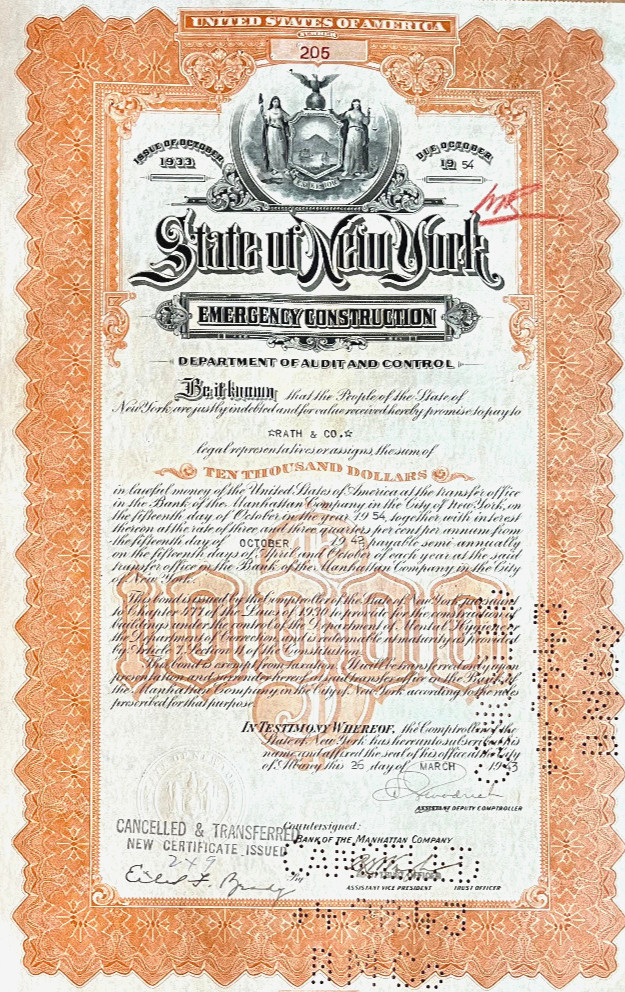 UNITED STATES OF AMERICA
NUMBER
205
ISSUE OF OCTOBER
1933
DUE OCTOBER
19 54
EXCELSIOR
State of New York
EMERGENCY CONSTRUCTION
DEPARTMENT OF AUDIT AND CONTROL
Be it known, that the People of the State of
New York are justly indebted and for value received hereby promise to pay to
☆RATH & CO.☆
legal representatives or assigns, the sum of
TEN THOUSAND DOLLARS
in lawful money of the United States of America at the transfer office
in the Bank of the Manhattan Company in the City of New York, on
the fifteenth day of October in the year 19 54, together with interest
thereon at the rate of three and three quarters per cent per annum from
the fifteenth day of OCTOBER 1942 payable semi-annually
on the fifteenth days of April and October of each year at the said
transfer office in the Bank of the Manhattan Company in the City
of New York.
10000
This bond is issued by the Comptroller of the State of New York pursuant
to Chapter 177 of the Laws of 1930 to provide for the construction of
buildings under the control of the Department of Mental Hygiene or
the Department of Correction, and is redeemable at maturity as provided
by Article 7, Section 11 of the Constitution.
This bond is exempt from taxation. It will be transferred only upon
presentation and surrender hereof at said transfer office in the Bank of
the Manhattan Company in the City of New York according to the rules
prescribed for that purpose.
IN TESTIMONY WHEREOF, the Comptroller of the
State of New York has hereunto subscribed his
name and affixed the seal of his office at the City
of Albany this 26 day of MARCH 1943
ASSISTANT DEPUTY COMPTROLLER
CANCELLED & TRANSFERRED
NEW CERTIFICATE ISSUED
249
Countersigned:
BANK OF THE MANHATTAN COMPANY
By
ASSISTANT VICE PRESIDENT TRUST OFFICER
CANCELLED